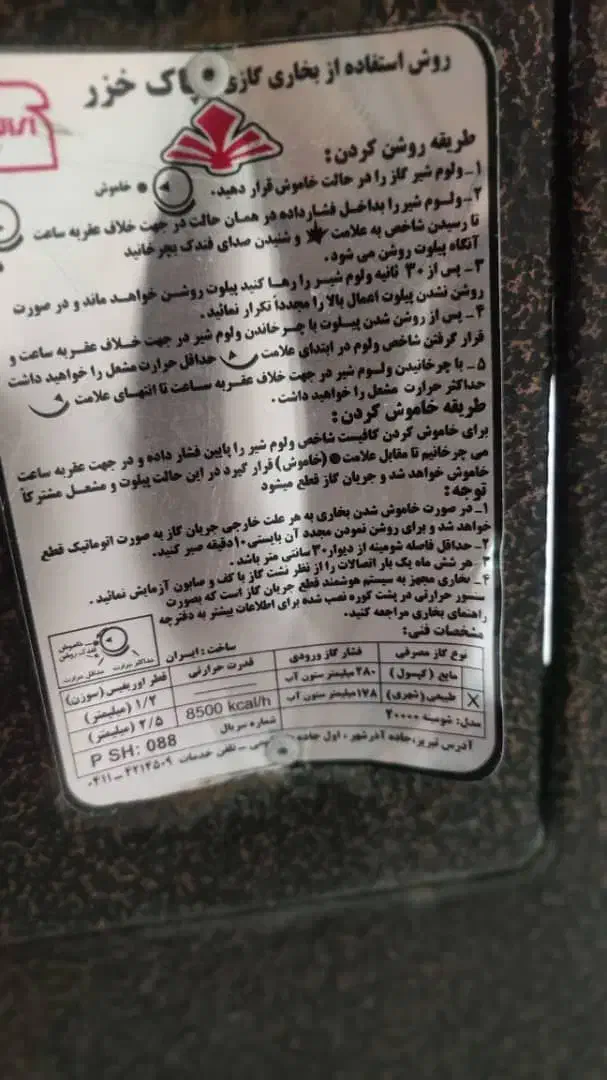 روش استفاده از بخاری گازی پاک خزر
طریقه روشن کردن :
۱_ولوم شیر گاز را در حالت خاموش قرار دهید. ● خاموش
۲_ولوم شیر را بداخل فشار داده در همان حالت در جهت خلاف عقربه ساعت
تا رسیدن شاخص به علامت و شنیدن صدای فندک بچرخانید
آنگاه پیلوت روشن می شود.
۳_ پس از ۳۰ ثانیه ولوم شیر را رها کنید پیلوت روشن خواهد ماند و در صورت
روشن نشدن پیلوت اعمال بالا را مجدداً تکرار نمائید.
۴_ پس از روشن شدن پیلوت با چرخاندن ولوم شیر در جهت خلاف عقربه ساعت و
قرار گرفتن شاخص ولوم در ابتدای علامت حداقل حرارت مشعل را خواهید داشت
۵_ با چرخانیدن ولوم شیر در جهت خلاف عقربه ساعت تا انتهای علامت
حداکثر حرارت مشعل را خواهید داشت.
طریقه خاموش کردن :
برای خاموش کردن کافیست شاخص ولوم شیر را پایین فشار داده و در جهت عقربه ساعت
می چرخانیم تا مقابل علامت ● (خاموش) قرار گیرد در این حالت پیلوت و مشعل مشترکاً
خاموش خواهد شد و جریان گاز قطع میشود
توجه :
۱_ در صورت خاموش شدن بخاری به هر علت خارجی جریان گاز به صورت اتوماتیک قطع
خواهد شد و برای روشن نمودن مجدد آن بایستی ۱۰ دقیقه صبر کنید.
۲_ حداقل فاصله شومینه از دیوار ۳۰ سانتی متر باشد.
۳_ هر شش ماه یک بار اتصالات را از نظر نشت گاز با کف و صابون آزمایش نمائید.
۴_ بخاری مجهز به سیستم هوشمند قطع جریان گاز است که بصورت
سنسور حرارتی در پشت کوره نصب شده برای اطلاعات بیشتر به دفترچه
راهنمای بخاری مراجعه کنید.
مشخصات فنی: ساخت : ایران
خاموش
فندک روشن
حداکثر حرارت حداقل حرارت
نوع گاز مصرفی فشار گاز ورودی قدرت حرارتی قطر اوریفیس (سوزن)
مایع (کپسول) ۲۸۰ میلیمتر ستون آب ۱/۲ (میلیمتر)
X طبیعی (شهری) ۱۷۸ میلیمتر ستون آب 8500 kcal/h ۲/۵ (میلیمتر)
مدل: شومینه ۲۰۰۰۰ شماره سریال P SH: 088
آدرس تبریز، جاده آذرشهر، اول جاده _ تلفن خدمات ۴۲۱۴۵۰۹_۰۴۱۱